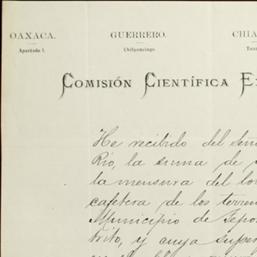 OAXACA. GUERRERO. CHIA
Apartado 1. Chilpancingo. Tuxt
COMISIÓN CIENTÍFICA E
He recibido del Seño
Rio, la suma de
la mensura del
cafetera de los terre
Municipio de Tepo
trito, y cuya super